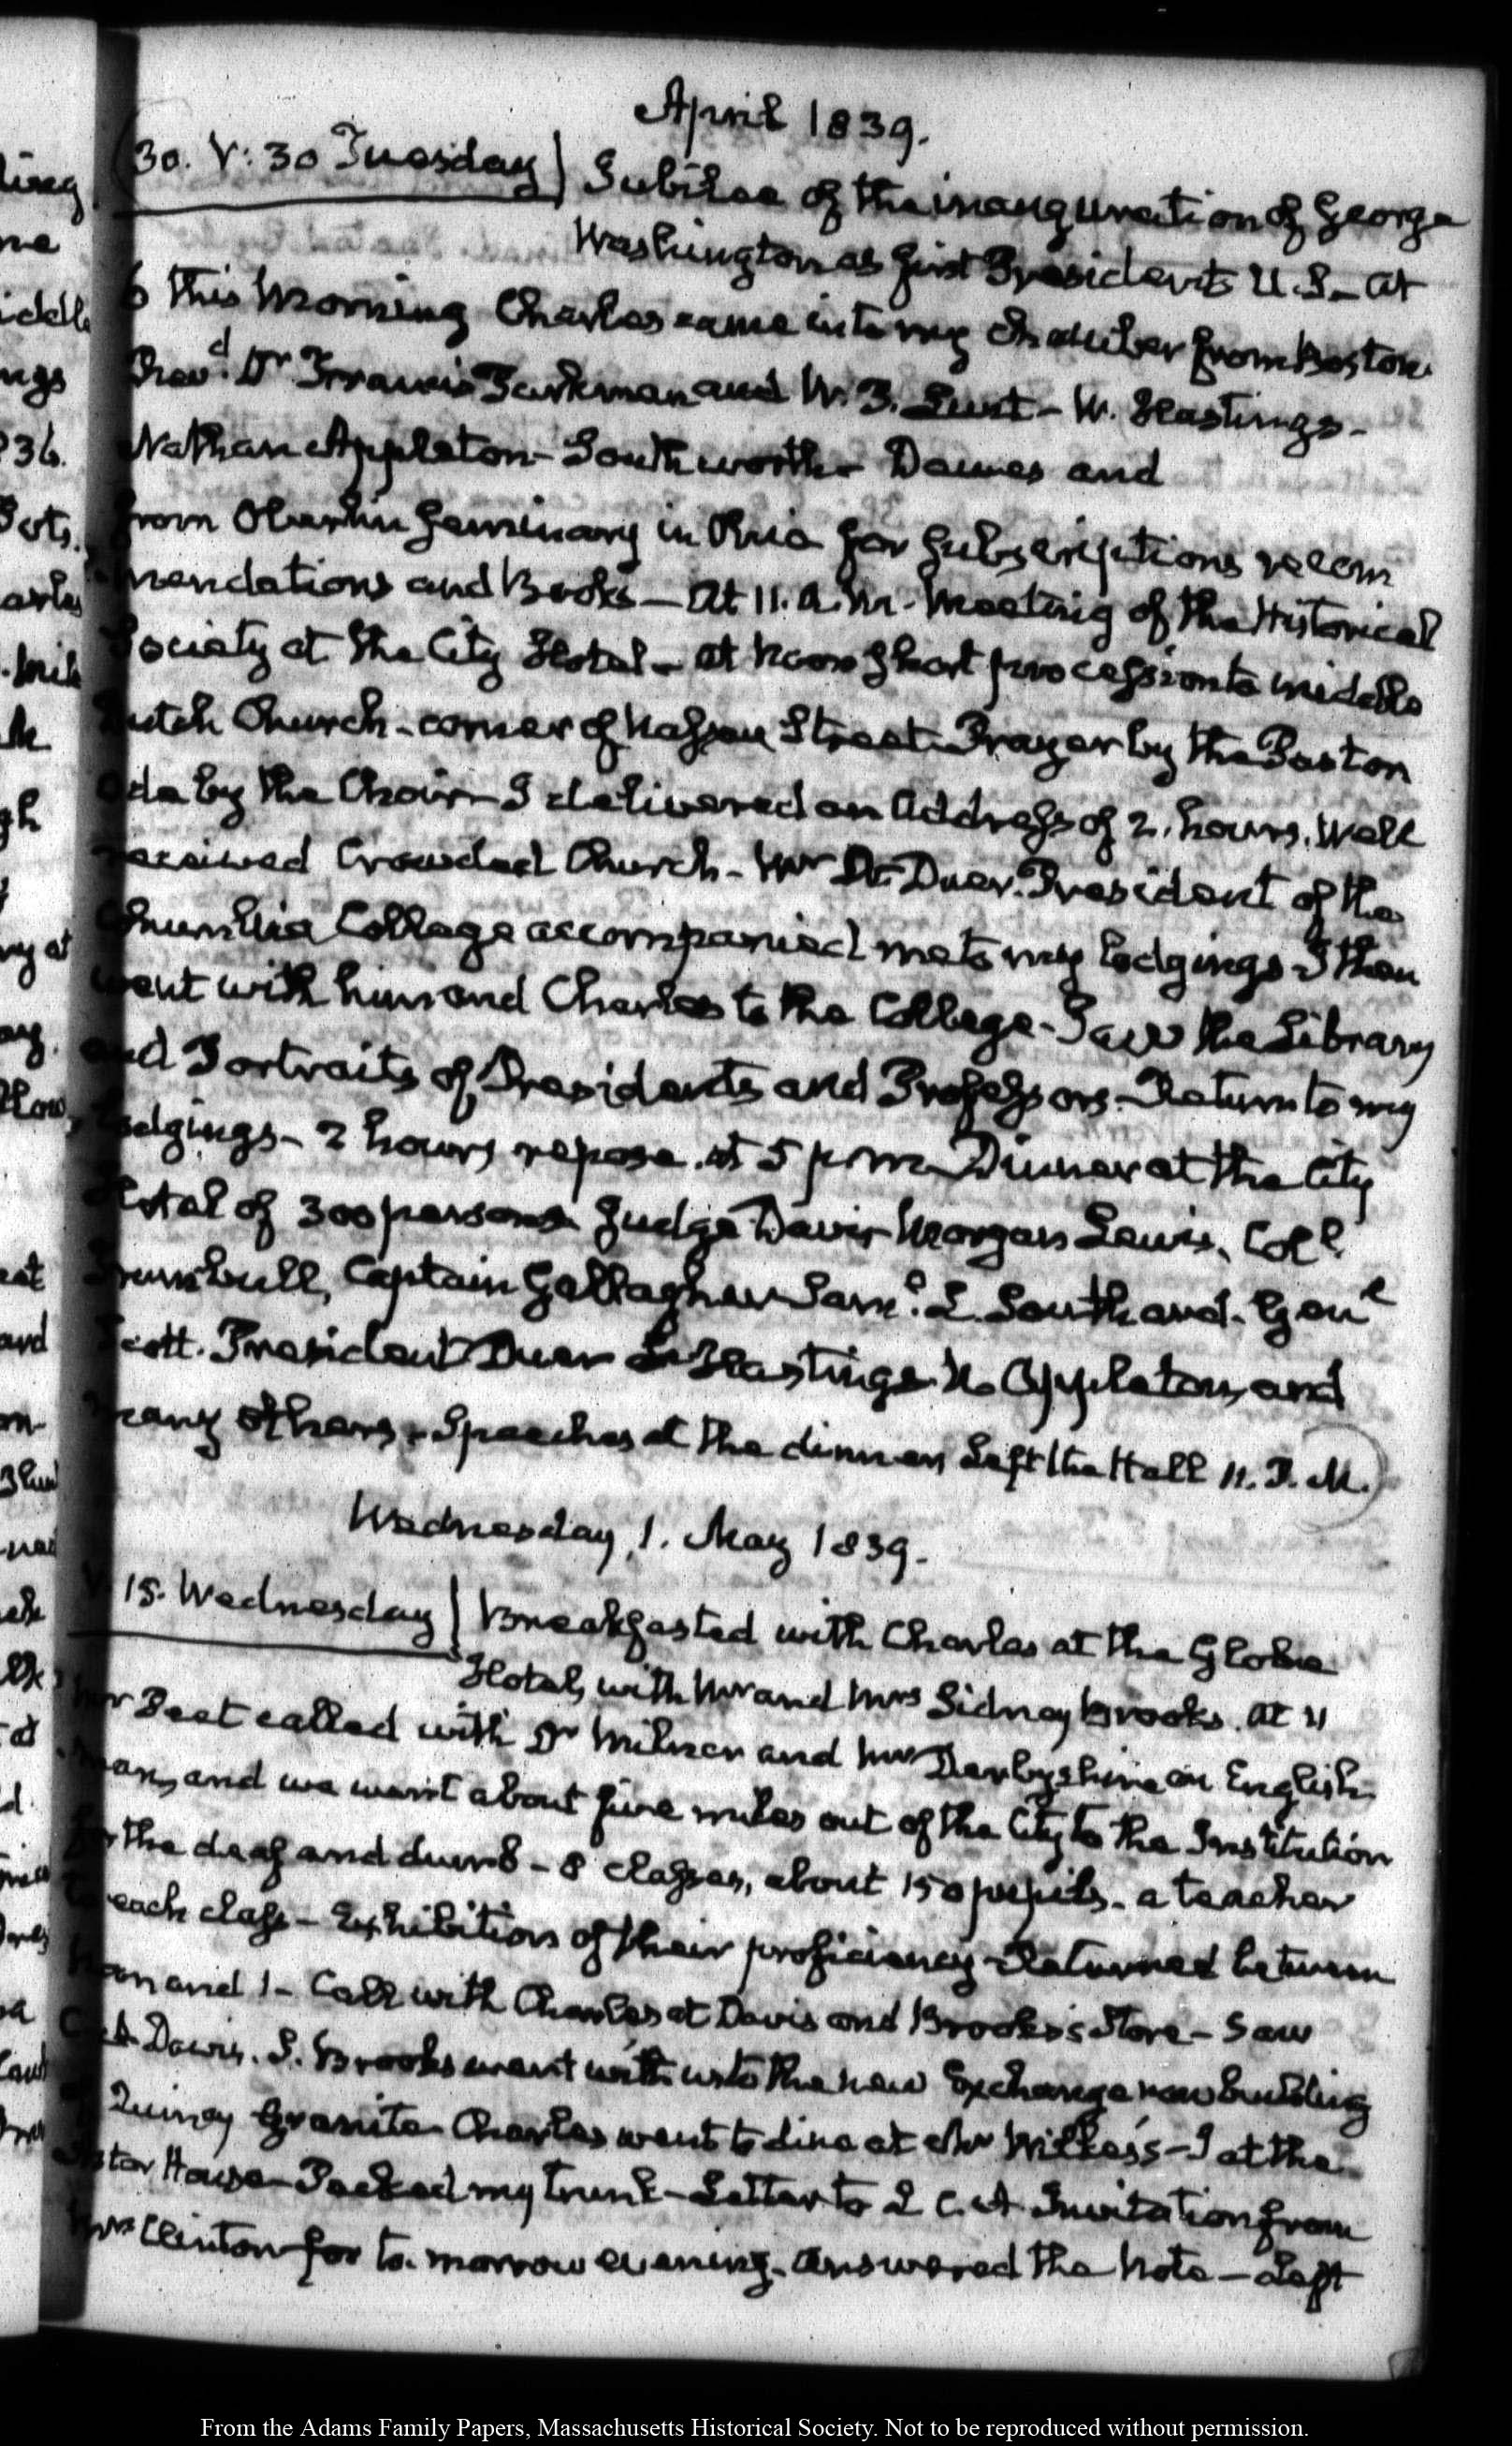 April 1839.
30. V: 30 Tuesday) Jubilee of the inauguration of George
Washington as first President U.S. - At
6 this Morning Charles came into my chamber from Boston
Revd. Dr Francis Parkman and W. P. Lunt - W. Hastings -
Nathan Appleton - Southworth - Dawes and
from Oberlin Seminary in Ohio for subscriptions recom
mendations and Books - At 11. A.M. Meeting of the Historical
Society at the City Hotel - at Noon short procession to middle
Dutch Church - corner of Nassau Street. Prayer by the Pastor
Ode by the Choir - I delivered an Address of 2. hours. Well
received Crowded Church - Mr Duer. President of the
Columbia College accompanied me to my lodgings - I then
went with him and Charles to the College - Saw the Library
and Portraits of Presidents and Professors - Return to my
lodgings - 2 hours repose. at 5 p.m. Dinner at the City
Hotel of 300 persons. Judge Davis Morgan Lewis, Coll
Trumbull, Captain Gallagher Saml. L. Southard. Genl
Scott. President Duer Hastings. N. Appleton, and
many others. Speeches at the dinner, Left the Hall 11. P.M.
Wednesday, 1. May 1839.
V. 15. Wednesday) Breakfasted with Charles at the Globe
Hotel, with Mr and Mrs Sidney Brooks. At 11
Mr Peet called with Dr Milnor and Mr Derbyshire an English
man, and we went about five miles out of the City to the Institution
for the deaf and dumb - 8 classes, about 150 pupils. a teacher
to each class - Exhibitions of their proficiency - Returned between
noon and 1 - Call with Charles at Davis and Brooks's Store - Saw
Davis. S. Brooks went with us to the new Exchange now building
of Quincy Granite - Charles went to dine at Mr Wilkes's - I at the
Astor House - Packed my trunk - Letter to L. C. A Invitation from
Mrs Clinton for to-morrow evening. answered the Note - Left
From the Adams Family Papers, Massachusetts Historical Society. Not to be reproduced without permission.